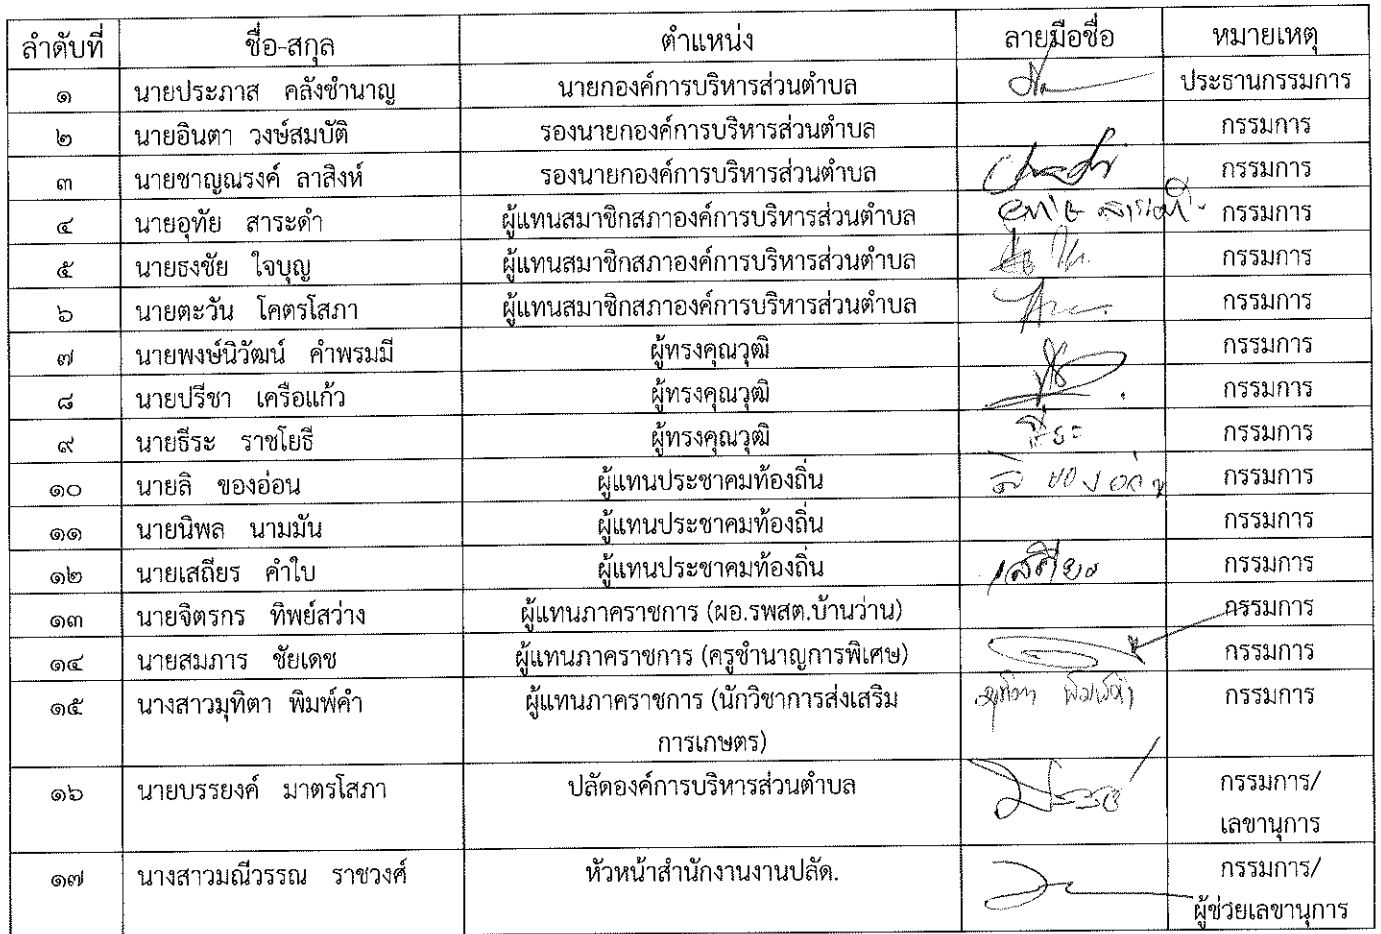 ลำดับที่ ชื่อ-สกุล ตำแหน่ง ลายมือชื่อ หมายเหตุ
๑ นายประภาส คลังชำนาญ นายกองค์การบริหารส่วนตำบล ประธานกรรมการ
๒ นายอินตา วงษ์สมบัติ รองนายกองค์การบริหารส่วนตำบล กรรมการ
๓ นายชาญณรงค์ ลาสิงห์ รองนายกองค์การบริหารส่วนตำบล กรรมการ
๔ นายอุทัย สาระดำ ผู้แทนสมาชิกสภาองค์การบริหารส่วนตำบล กรรมการ
๕ นายธงชัย ใจบุญ ผู้แทนสมาชิกสภาองค์การบริหารส่วนตำบล กรรมการ
๖ นายตะวัน โคตรโสภา ผู้แทนสมาชิกสภาองค์การบริหารส่วนตำบล กรรมการ
๗ นายพงษ์นิวัฒน์ คำพรมมี ผู้ทรงคุณวุฒิ กรรมการ
๘ นายปรีชา เครือแก้ว ผู้ทรงคุณวุฒิ กรรมการ
๙ นายธีระ ราชโยธี ผู้ทรงคุณวุฒิ ธีระ กรรมการ
๑๐ นายลิ ของอ่อน ผู้แทนประชาคมท้องถิ่น ลิ ของอ่อน กรรมการ
๑๑ นายนิพล นามมัน ผู้แทนประชาคมท้องถิ่น กรรมการ
๑๒ นายเสถียร คำใบ ผู้แทนประชาคมท้องถิ่น เสถียร กรรมการ
๑๓ นายจิตรกร ทิพย์สว่าง ผู้แทนภาคราชการ (ผอ.รพสต.บ้านว่าน) กรรมการ
๑๔ นายสมภาร ชัยเดช ผู้แทนภาคราชการ (ครูชำนาญการพิเศษ) กรรมการ
๑๕ นางสาวมุทิตา พิมพ์คำ ผู้แทนภาคราชการ (นักวิชาการส่งเสริม มุทิตา พิมพ์คำ กรรมการ
การเกษตร)
๑๖ นายบรรยงค์ มาตรโสภา ปลัดองค์การบริหารส่วนตำบล กรรมการ/
เลขานุการ
๑๗ นางสาวมณีวรรณ ราชวงศ์ หัวหน้าสำนักงานงานปลัด. กรรมการ/
ผู้ช่วยเลขานุการ